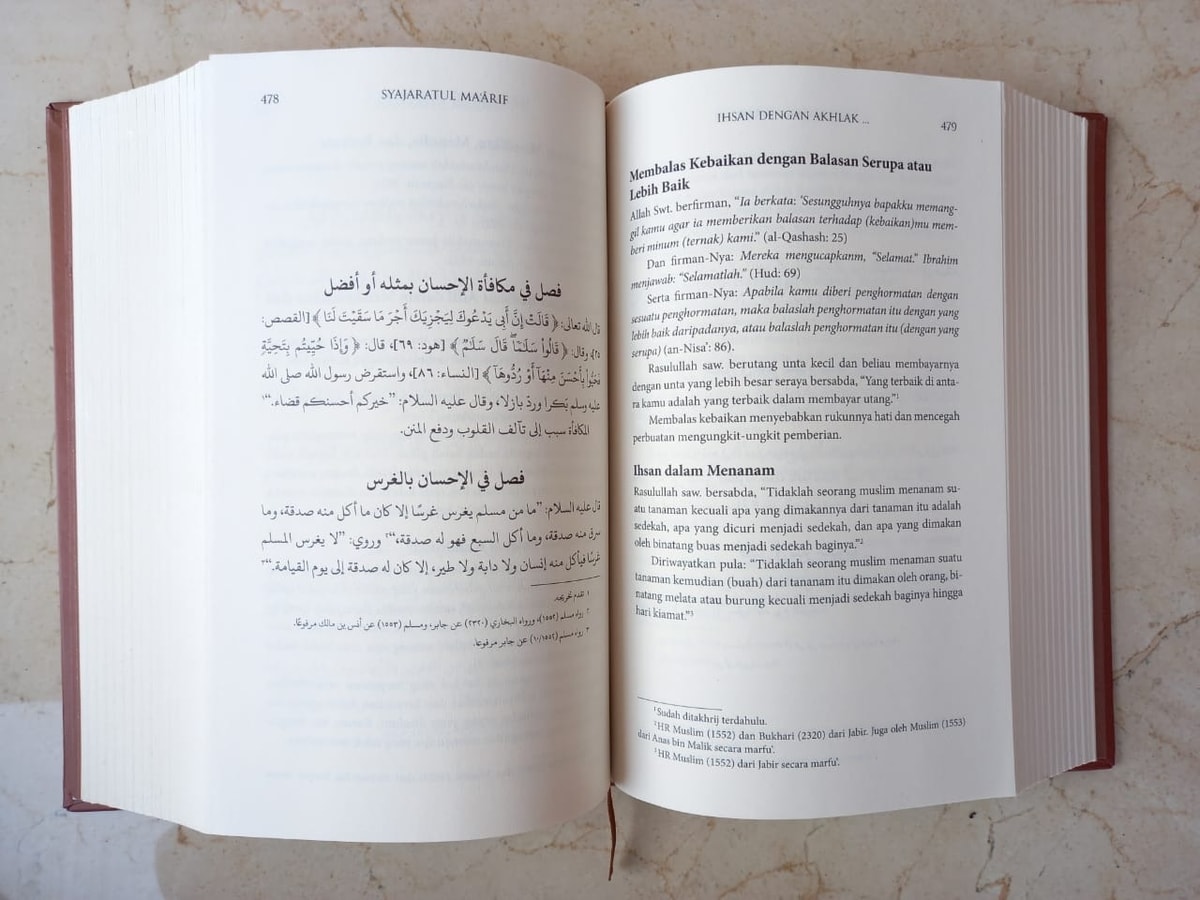 478
SYAJARATUL MA'ÂRIF
فصل في مكافأة الإحسان بمثله أو أفضل
قال الله تعالى: ﴿ قَالَتْ إِنَّ أَبِي يَدْعُوكَ لِيَجْزِيَكَ أَجْرَ مَا سَقَيْتَ لَنَا ﴾ [القصص:
٢٥]، وقال: ﴿ قَالُوا سَلَٰمًا ۖ قَالَ سَلَٰمٌ ﴾ [هود: ٦٩]، قال: ﴿ وَإِذَا حُيِّيتُم بِتَحِيَّةٍ
فَحَيُّوا بِأَحْسَنَ مِنْهَا أَوْ رُدُّوهَا ﴾ [النساء: ٨٦]، واستقرض رسول الله صلى الله
عليه وسلم بَكرا وردّ بازلا، وقال عليه السلام: ”خيركم أحسنكم قضاء.“¹
المكافأة سبب إلى تآلف القلوب ودفع المنن.
فصل في الإحسان بالغرس
قال عليه السلام: ”ما من مسلم يغرس غرسًا إلا كان ما أكل منه صدقة، وما
سرق منه صدقة، وما أكل السبع فهو له صدقة،“² وروي: ”لا يغرس المسلم
غرسًا فيأكل منه إنسان ولا دابة ولا طير، إلا كان له صدقة إلى يوم القيامة.“³
١ تقدم تخريجه.
٢ رواه مسلم (١٥٥٢)، ورواه البخاري (٢٣٢٠) عن جابر، ومسلم (١٥٥٣) عن أنس بن مالك مرفوعًا.
٣ رواه مسلم (١٠/١٥٥٢) عن جابر مرفوعا.
IHSAN DENGAN AKHLAK ...
479
Membalas Kebaikan dengan Balasan Serupa atau
Lebih Baik
Allah Swt. berfirman, “Ia berkata: ‘Sesungguhnya bapakku memang-
gil kamu agar ia memberikan balasan terhadap (kebaikan)mu mem-
beri minum (ternak) kami.” (al-Qashash: 25)
Dan firman-Nya: Mereka mengucapkanm, “Selamat.” Ibrahim
menjawab: “Selamatlah.” (Hud: 69)
Serta firman-Nya: Apabila kamu diberi penghormatan dengan
sesuatu penghormatan, maka balaslah penghormatan itu dengan yang
lebih baik daripadanya, atau balaslah penghormatan itu (dengan yang
serupa) (an-Nisa’: 86).
Rasulullah saw. berutang unta kecil dan beliau membayarnya
dengan unta yang lebih besar seraya bersabda, “Yang terbaik di anta-
ra kamu adalah yang terbaik dalam membayar utang.”¹
Membalas kebaikan menyebabkan rukunnya hati dan mencegah
perbuatan mengungkit-ungkit pemberian.
Ihsan dalam Menanam
Rasulullah saw. bersabda, “Tidaklah seorang muslim menanam su-
atu tanaman kecuali apa yang dimakannya dari tanaman itu adalah
sedekah, apa yang dicuri menjadi sedekah, dan apa yang dimakan
oleh binatang buas menjadi sedekah baginya.”²
Diriwayatkan pula: “Tidaklah seorang muslim menaman suatu
tanaman kemudian (buah) dari tananam itu dimakan oleh orang, bi-
natang melata atau burung kecuali menjadi sedekah baginya hingga
hari kiamat.”³
¹ Sudah ditakhrij terdahulu.
² HR Muslim (1552) dan Bukhari (2320) dari Jabir. Juga oleh Muslim (1553)
dari Anas bin Malik secara marfu’.
³ HR Muslim (1552) dari Jabir secara marfu’.